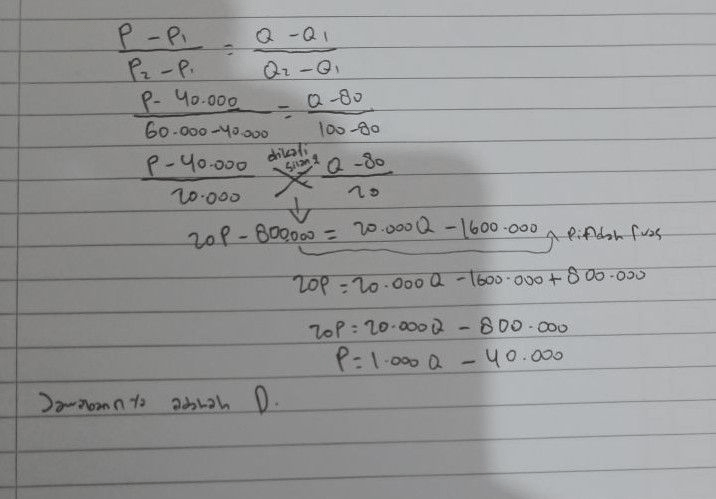 P - P₁ / P₂ - P₁ = Q - Q₁ / Q₂ - Q₁
P - 40.000 / 60.000 - 40.000 = Q - 80 / 100 - 80
P - 40.000 / 20.000 dikali silang Q - 80 / 20
20P - 800.000 = 20.000Q - 1600.000 Pindah ruas
20P = 20.000Q - 1600.000 + 800.000
20P = 20.000Q - 800.000
P = 1.000Q - 40.000
Jawabannya adalah D.